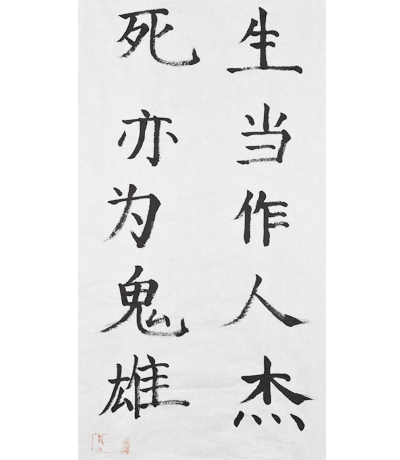 生当作人杰
死亦为鬼雄